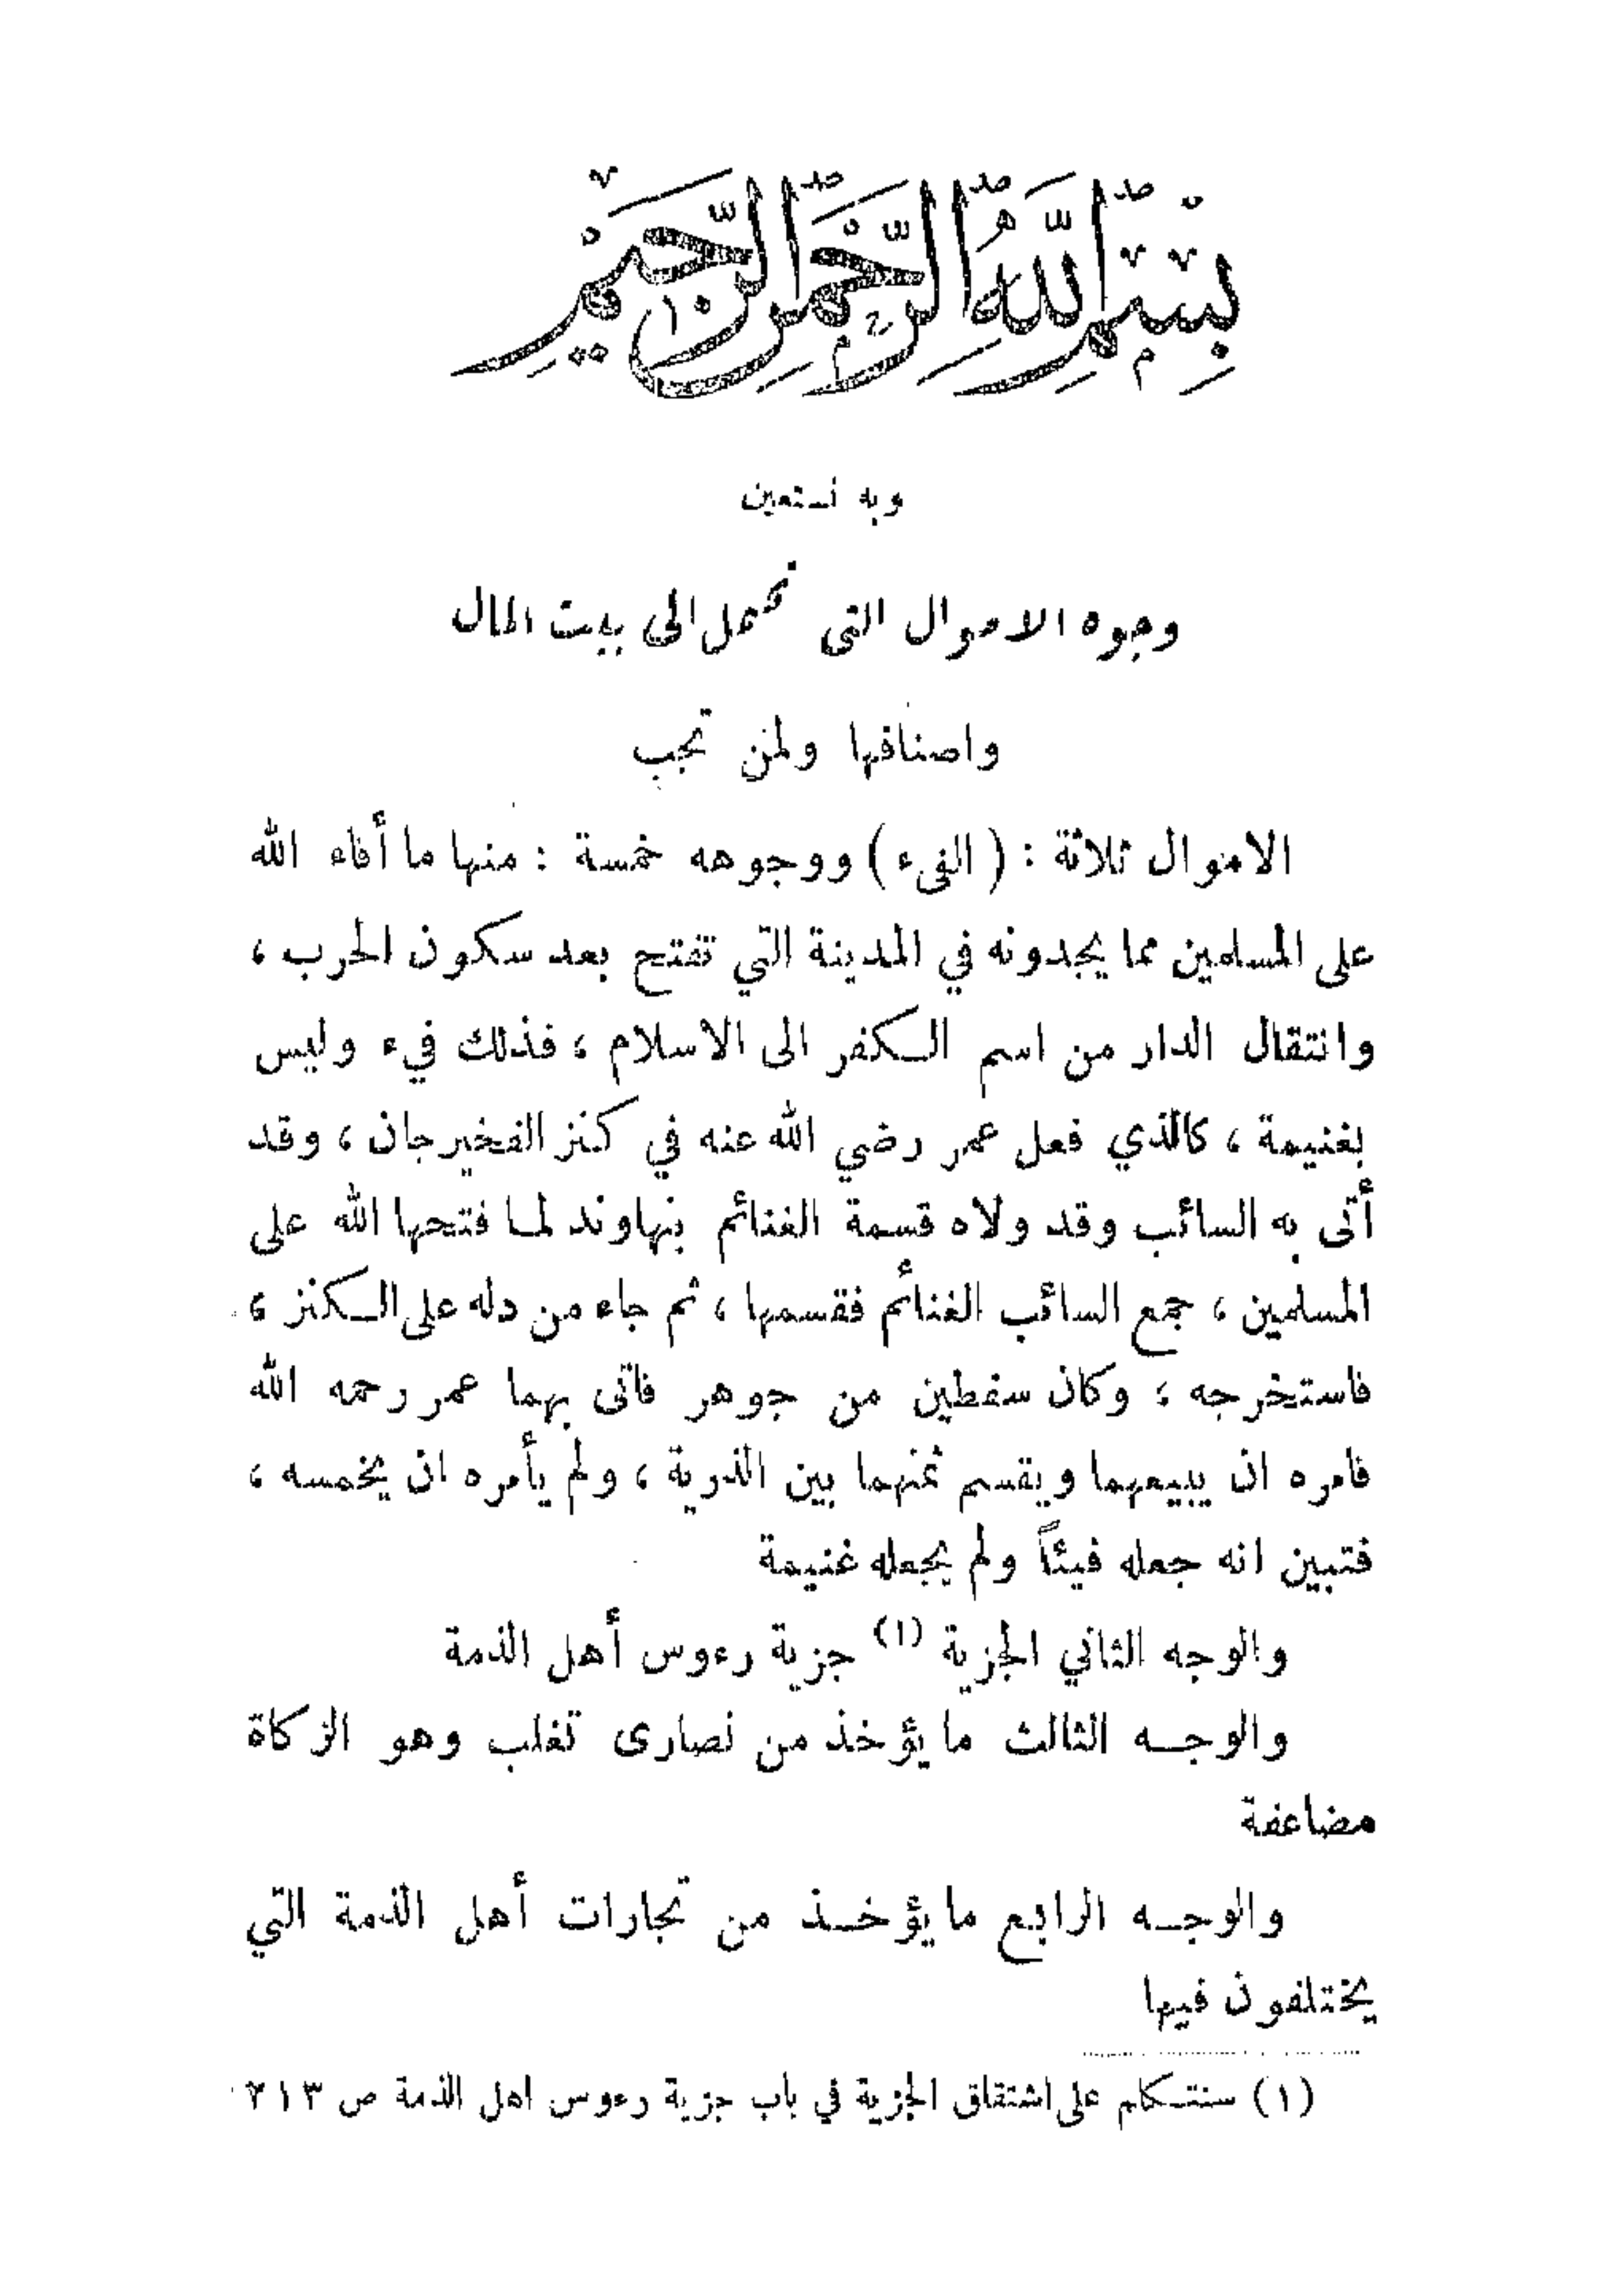 بسم الله الرحمن الرحيم
وبه نستعين
وجوه الاموال التى تحمل الى بيت المال
واصنافها ولمن تجب
الاموال ثلاثة : ( الفىء ) ووجوهه خمسة : منها ما أفاء الله
على المسلمين مما يجدونه في المدينة التي تفتح بعد سكون الحرب ،
وانتقال الدار من اسم الكفر الى الاسلام ، فذلك فيء وليس
بغنيمة ، كالذي فعل عمر رضي الله عنه في كنز الفخيرجان ، وقد
أتى به السائب وقد ولاه قسمة الغنائم بنهاوند لما فتحها الله على
المسلمين ، جمع السائب الغنائم فقسمها ، ثم جاء من دله على الكنز ،
فاستخرجه ، وكان سفطين من جوهر فاتى بهما عمر رحمه الله
فامره ان يبيعهما ويقسم ثمنهما بين الذرية ، ولم يأمره ان يخمسه ،
فتبين انه جعله فيئاً ولم يجعله غنيمة
والوجه الثاني الجزية (١) جزية رءوس أهل الذمة
والوجه الثالث ما يؤخذ من نصارى تغلب وهو الزكاة
مضاعفة
والوجه الرابع ما يؤخذ من تجارات أهل الذمة التي
يختلفون فيها
(١) سنتكلم على اشتقاق الجزية في باب جزية رءوس اهل الذمة ص ٢١٣